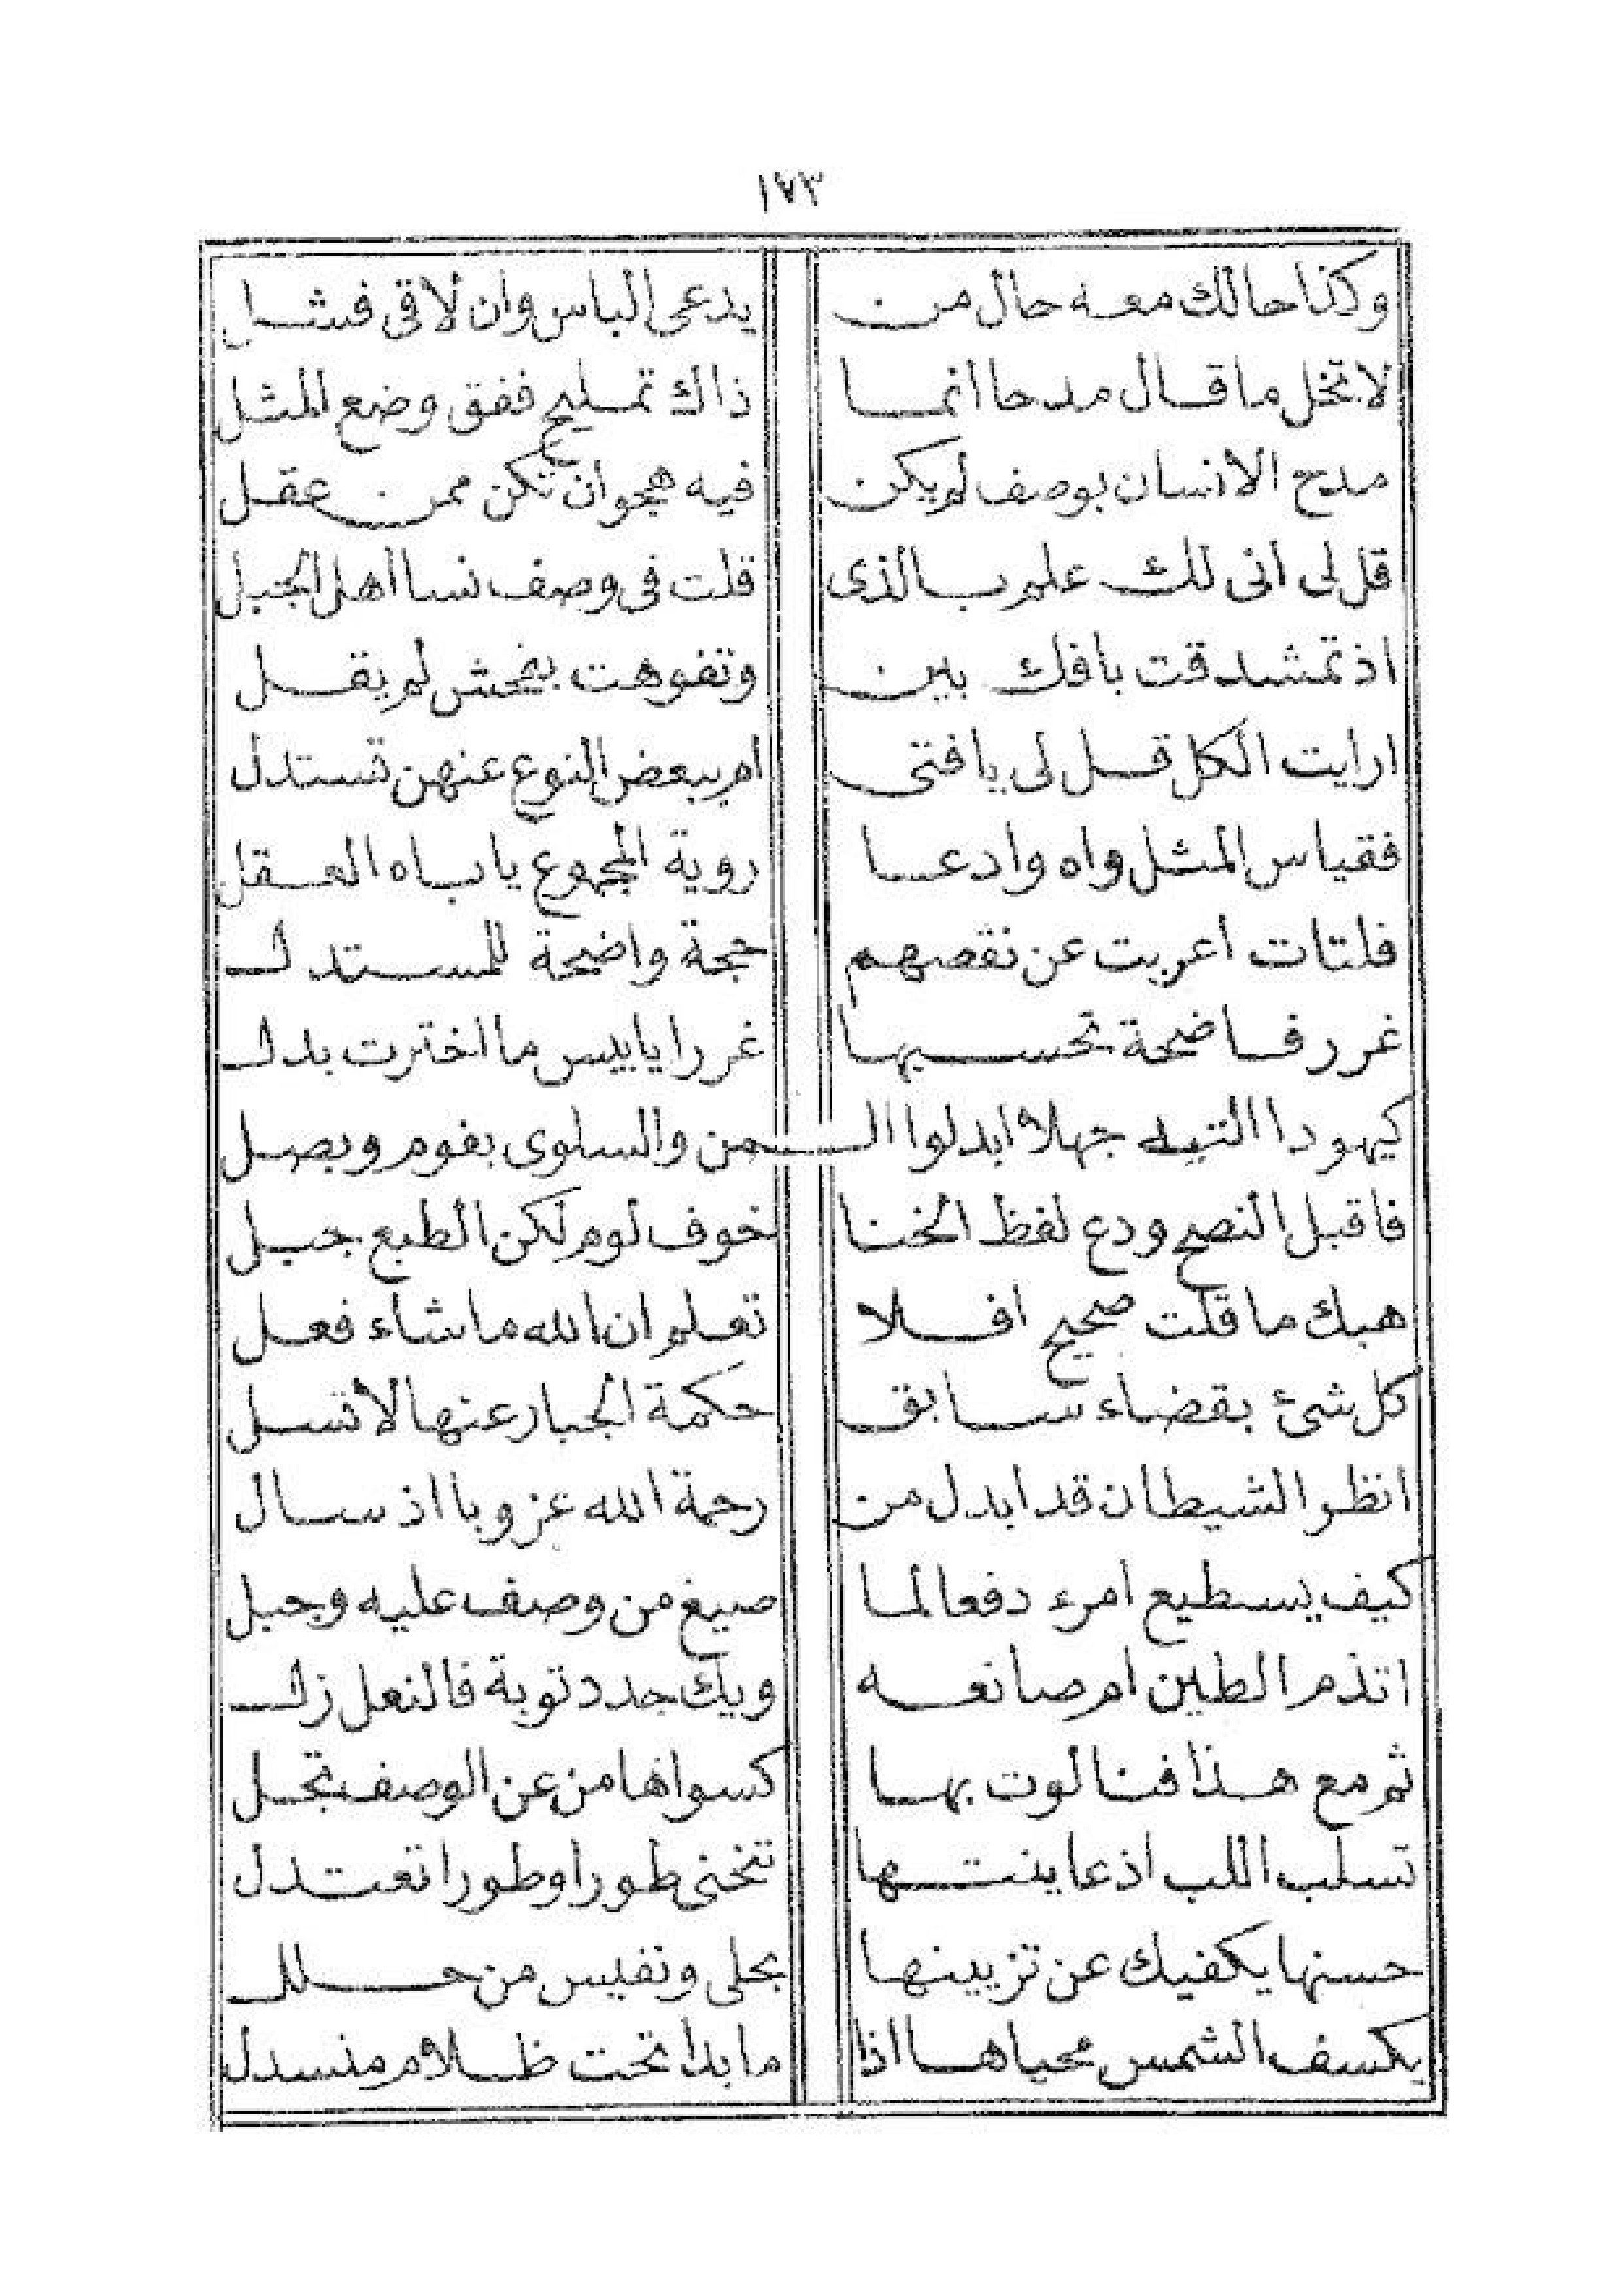 ١٧٣
وكذا حالك معه حال من يدعى الباس وان لاقى فشل
لا تخل ما قال مدحا انما ذاك تمليح ففق وضع المثل
مدح الانسان بوصف لم يكن فيه هجو ان تكن ممن عقل
قل لى انى لك علم بالذى قلت فى وصف نسا اهل الجبل
اذ تمشدقت بافك بين وتفوهت بفحش لم يقل
ارايت الكل قل لى يا فتى ام ببعض النوع عنهن تستدل
فقياس المثل واه وادعا روية المجموع ياباه العقل
فلتات اعربت عن نقصهم حجة واضحة للمستدل
غرر فاضحة تحسبها غررا يا بيس ما اخترت بدل
كيهود التيه جهلا ابدلوا الـمن والسلوى بفوم وبصل
فاقبل النصح ودع لفظ الخنا خوف لوم لكن الطبع جبل
هبك ما قلت صحيح افلا تعلم ان الله ما شاء فعل
كل شئ بقضاء سابق حكمة الجبار عنها لا تسل
انظر الشيطان قد ابدل من رحمة الله عزوبا اذ سال
كيف يسطيع امرء دفعا لما صيغ من وصف عليه وجبل
اتذم الطين ام صانعه ويك جدد توبة فالنعل زل
ثم مع هذا فنالوت بها كسواها من عن الوصف تجل
تسلب اللب اذ عاينتها تنخنى طورا وطورا تعتدل
حسنها يكفيك عن تزيينها بحلى ونفيس من حلل
يكسف الشمس محياها اذا ما بدا تحت ظلام منسدل